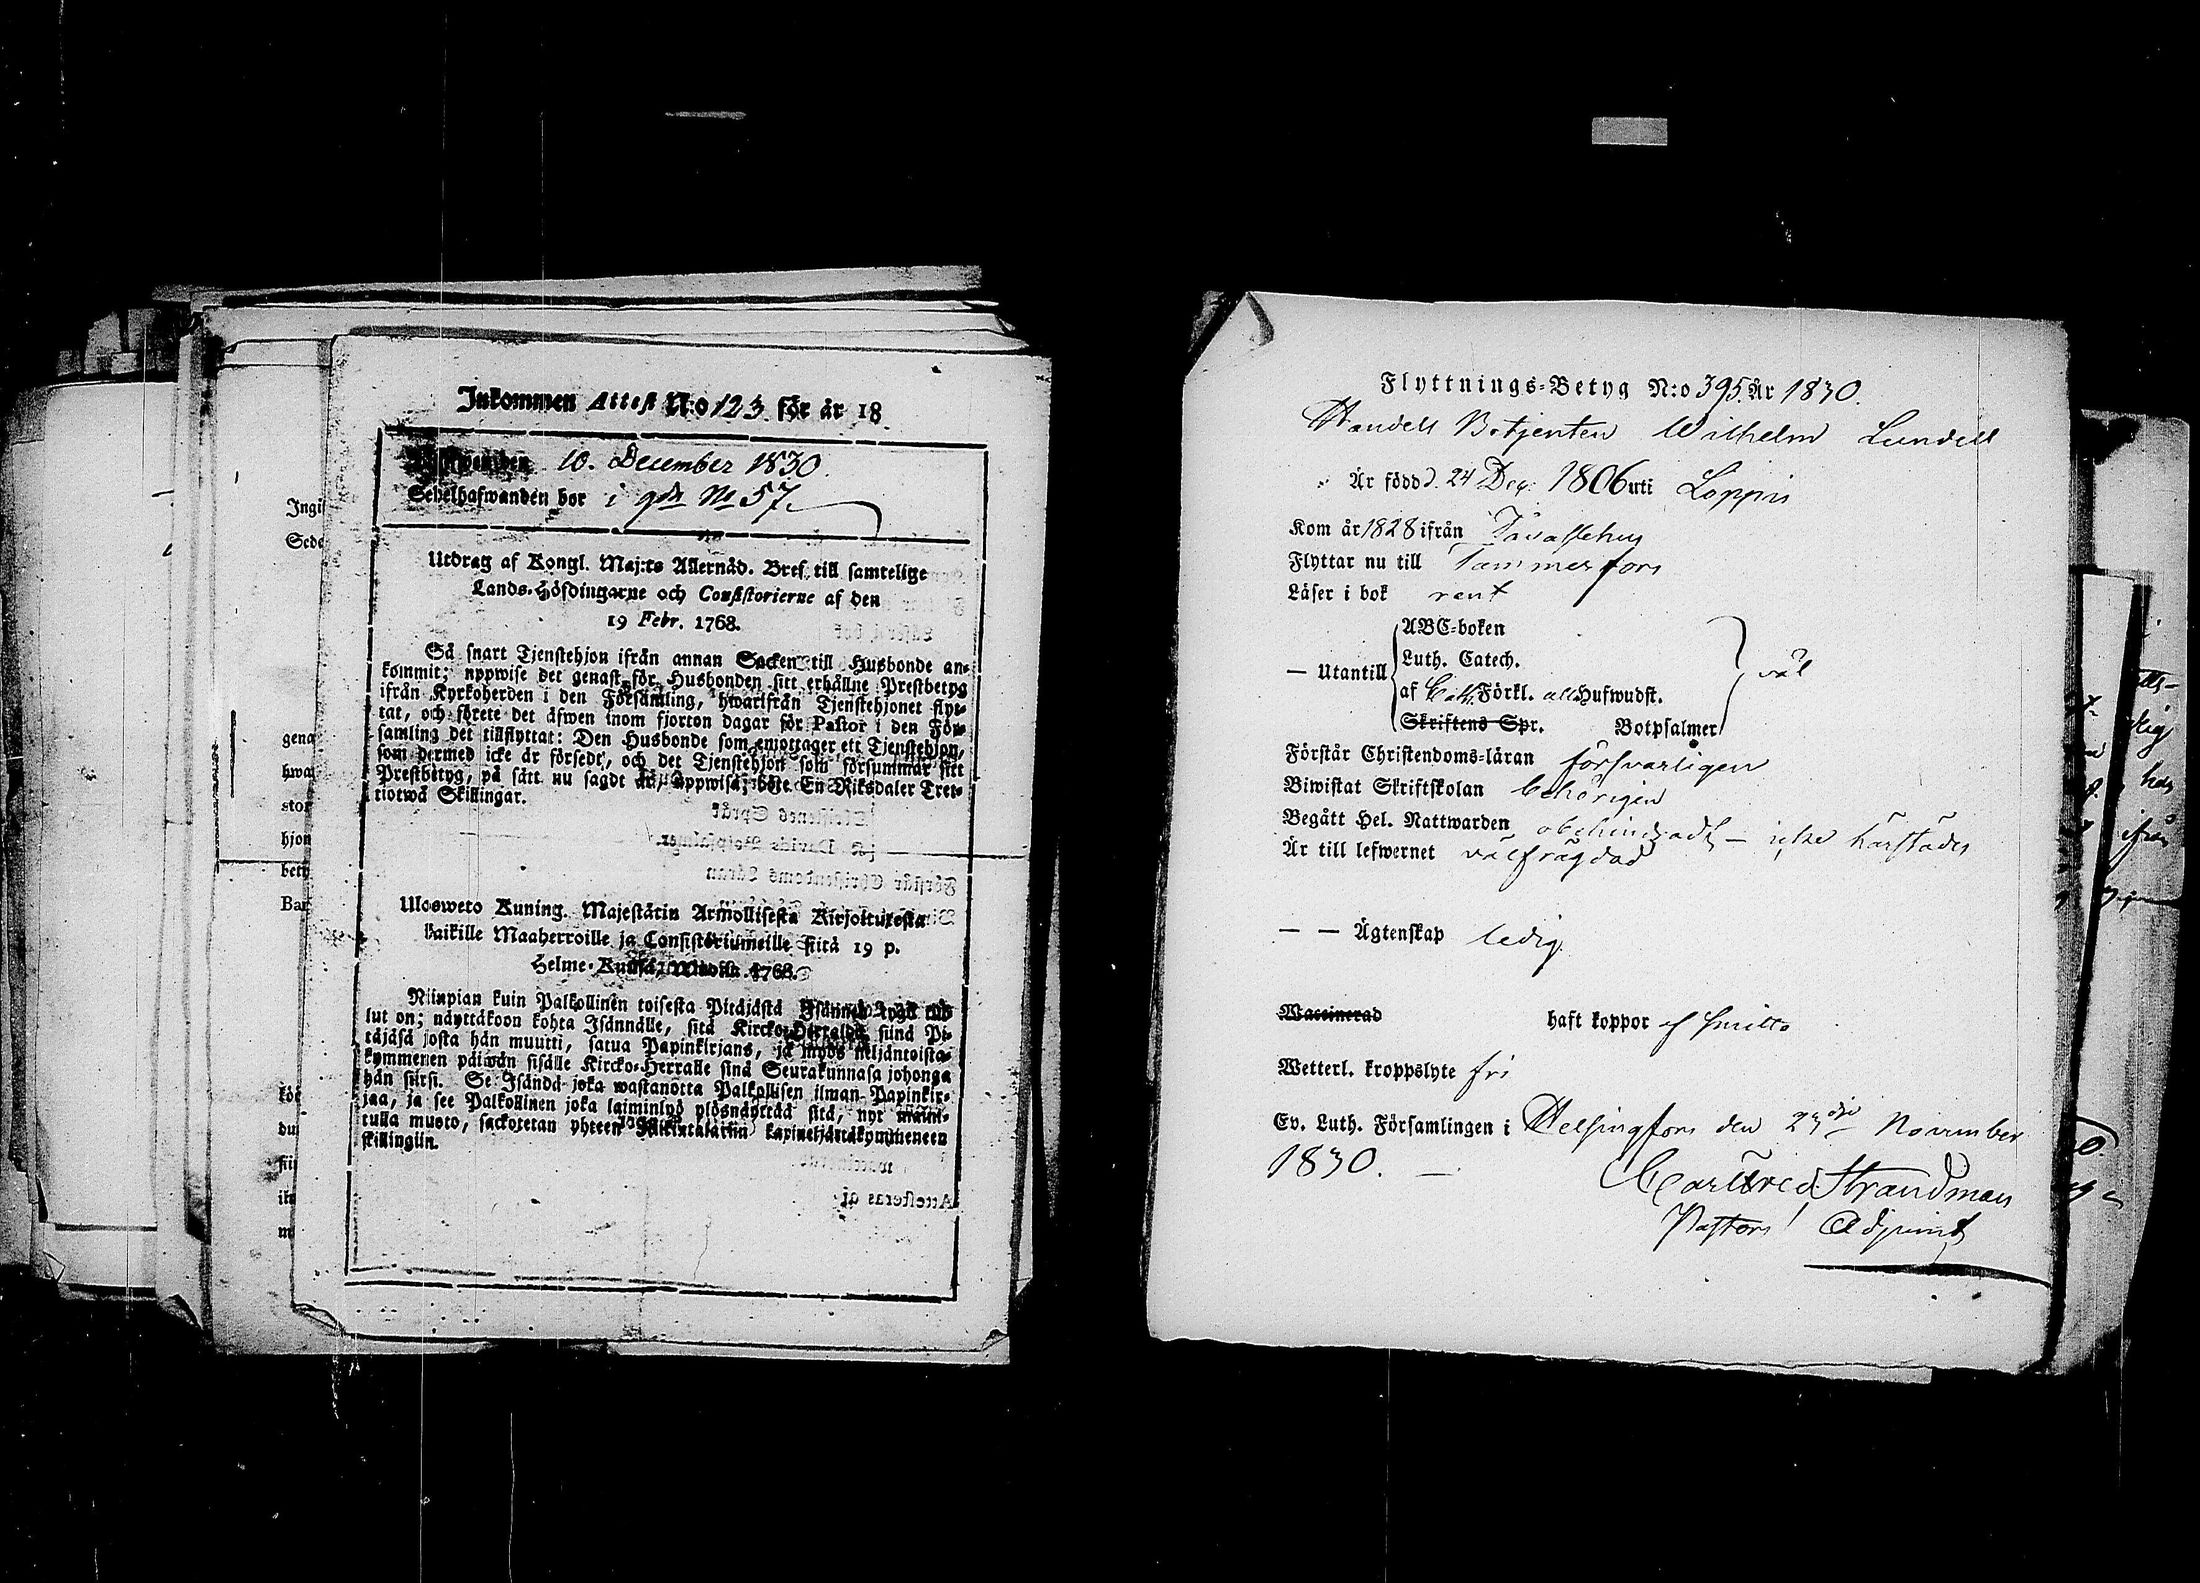 Inkommen Attest N:o 123 för år 18
10. December 1830.
Sedelhafwanden bor i gdn No 57.
Utdrag af Kongl. Maj:ts Allernåd. Bref till samtelige
Lands-Höfdingarne och Consistorierne af den
19 Febr. 1768.
Så snart Tjenstehjon ifrån annan Socken till Husbonde an-
kommit; uppwise det genast för Husbonden sitt erhållne Prestbetyg
ifrån Kyrkoherden i den Församling, hwarifrån Tjenstehjonet flyt-
tat, och förete det äfwen inom fjorton dagar för Pastor i den För-
samling det tillflyttat: Den Husbonde som emottager ett Tjenstehjon,
som dermed icke är försedt, och det Tjenstehjon som försummar sitt
Prestbetyg, på sätt nu sagdt är, uppwisa; böte En Riksdaler Tret-
tiotwå Skillingar.
Ulosweto Kuning. Majestätin Armollisesta Kirjoituxesta
kaikille Maaherroille ja Consistoriumeille siitä 19 p.
Helme-Kuusa, 1768.
Niinpian kuin Palkollinen toisesta Pitäjästä Isännän tygö tul-
lut on; näyttäköön kohta Isännälle, sitä Kircko-Herralda siinä Pi-
täjäsä josta hän muutti, saatua Papinkirjans, ja myös neljäntoista-
kymmenen päiwän sisälle Kircko-Herralle siinä Seurakunnasa johonga
hän siirsi. Se Isändä joka wastanotta Palkollisen ilman Papinkir-
jaa, ja see Palkollinen joka laiminlyö ylösnäyttää sitä, nyt maini-
tulla muoto, sackotetan yhteen Rikintalarin kapineljättäkymmeneen
skillingiin.
Flyttnings-Betyg N:o 395. År 1830.
Handels Betjenten Wilhelm Lundell
Är född d. 24 Dec. 1806 uti Loppis
Kom år 1828 ifrån Tavastehus
Flyttar nu till Tammerfors
Läser i bok rent
— Utantill
ABC-boken
Luth. Catech.
af Cath. Förkl. all Hufwudst.
Skriftens Spr. Botpsalmer
väl
Förstår Christendoms-läran försvarligen
Biwistat Skriftskolan behörigen
Begått Hel. Nattwarden obehindradt — icke härstädes
Är till lefwernet välfrägdad
— — Ägtenskap ledig
Waccinerad haft koppor af smitta
Wetterl. kroppslyte fri
Ev. Luth. Församlingen i Helsingfors den 23dje November
1830. —
Carl Fred Strandman
Pastors Adjunct